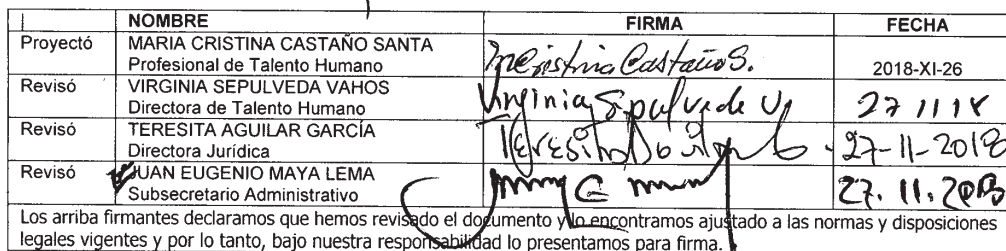 NOMBRE FIRMA FECHA
Proyectó MARIA CRISTINA CASTAÑO SANTA
Profesional de Talento Humano MCristina Castaño S. 2018-XI-26
Revisó VIRGINIA SEPULVEDA VAHOS
Directora de Talento Humano Virginia Sepulveda V 27 11 18
Revisó TERESITA AGUILAR GARCÍA
Directora Jurídica Teresita Aguilar G - 27-11-2018
Revisó JUAN EUGENIO MAYA LEMA
Subsecretario Administrativo 27.11.2018
Los arriba firmantes declaramos que hemos revisado el documento y lo encontramos ajustado a las normas y disposiciones
legales vigentes y por lo tanto, bajo nuestra responsabilidad lo presentamos para firma.